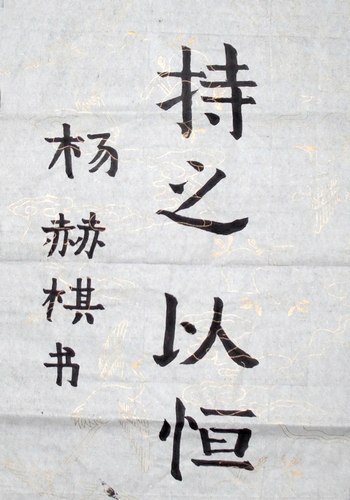 持之以恒
杨赫棋书